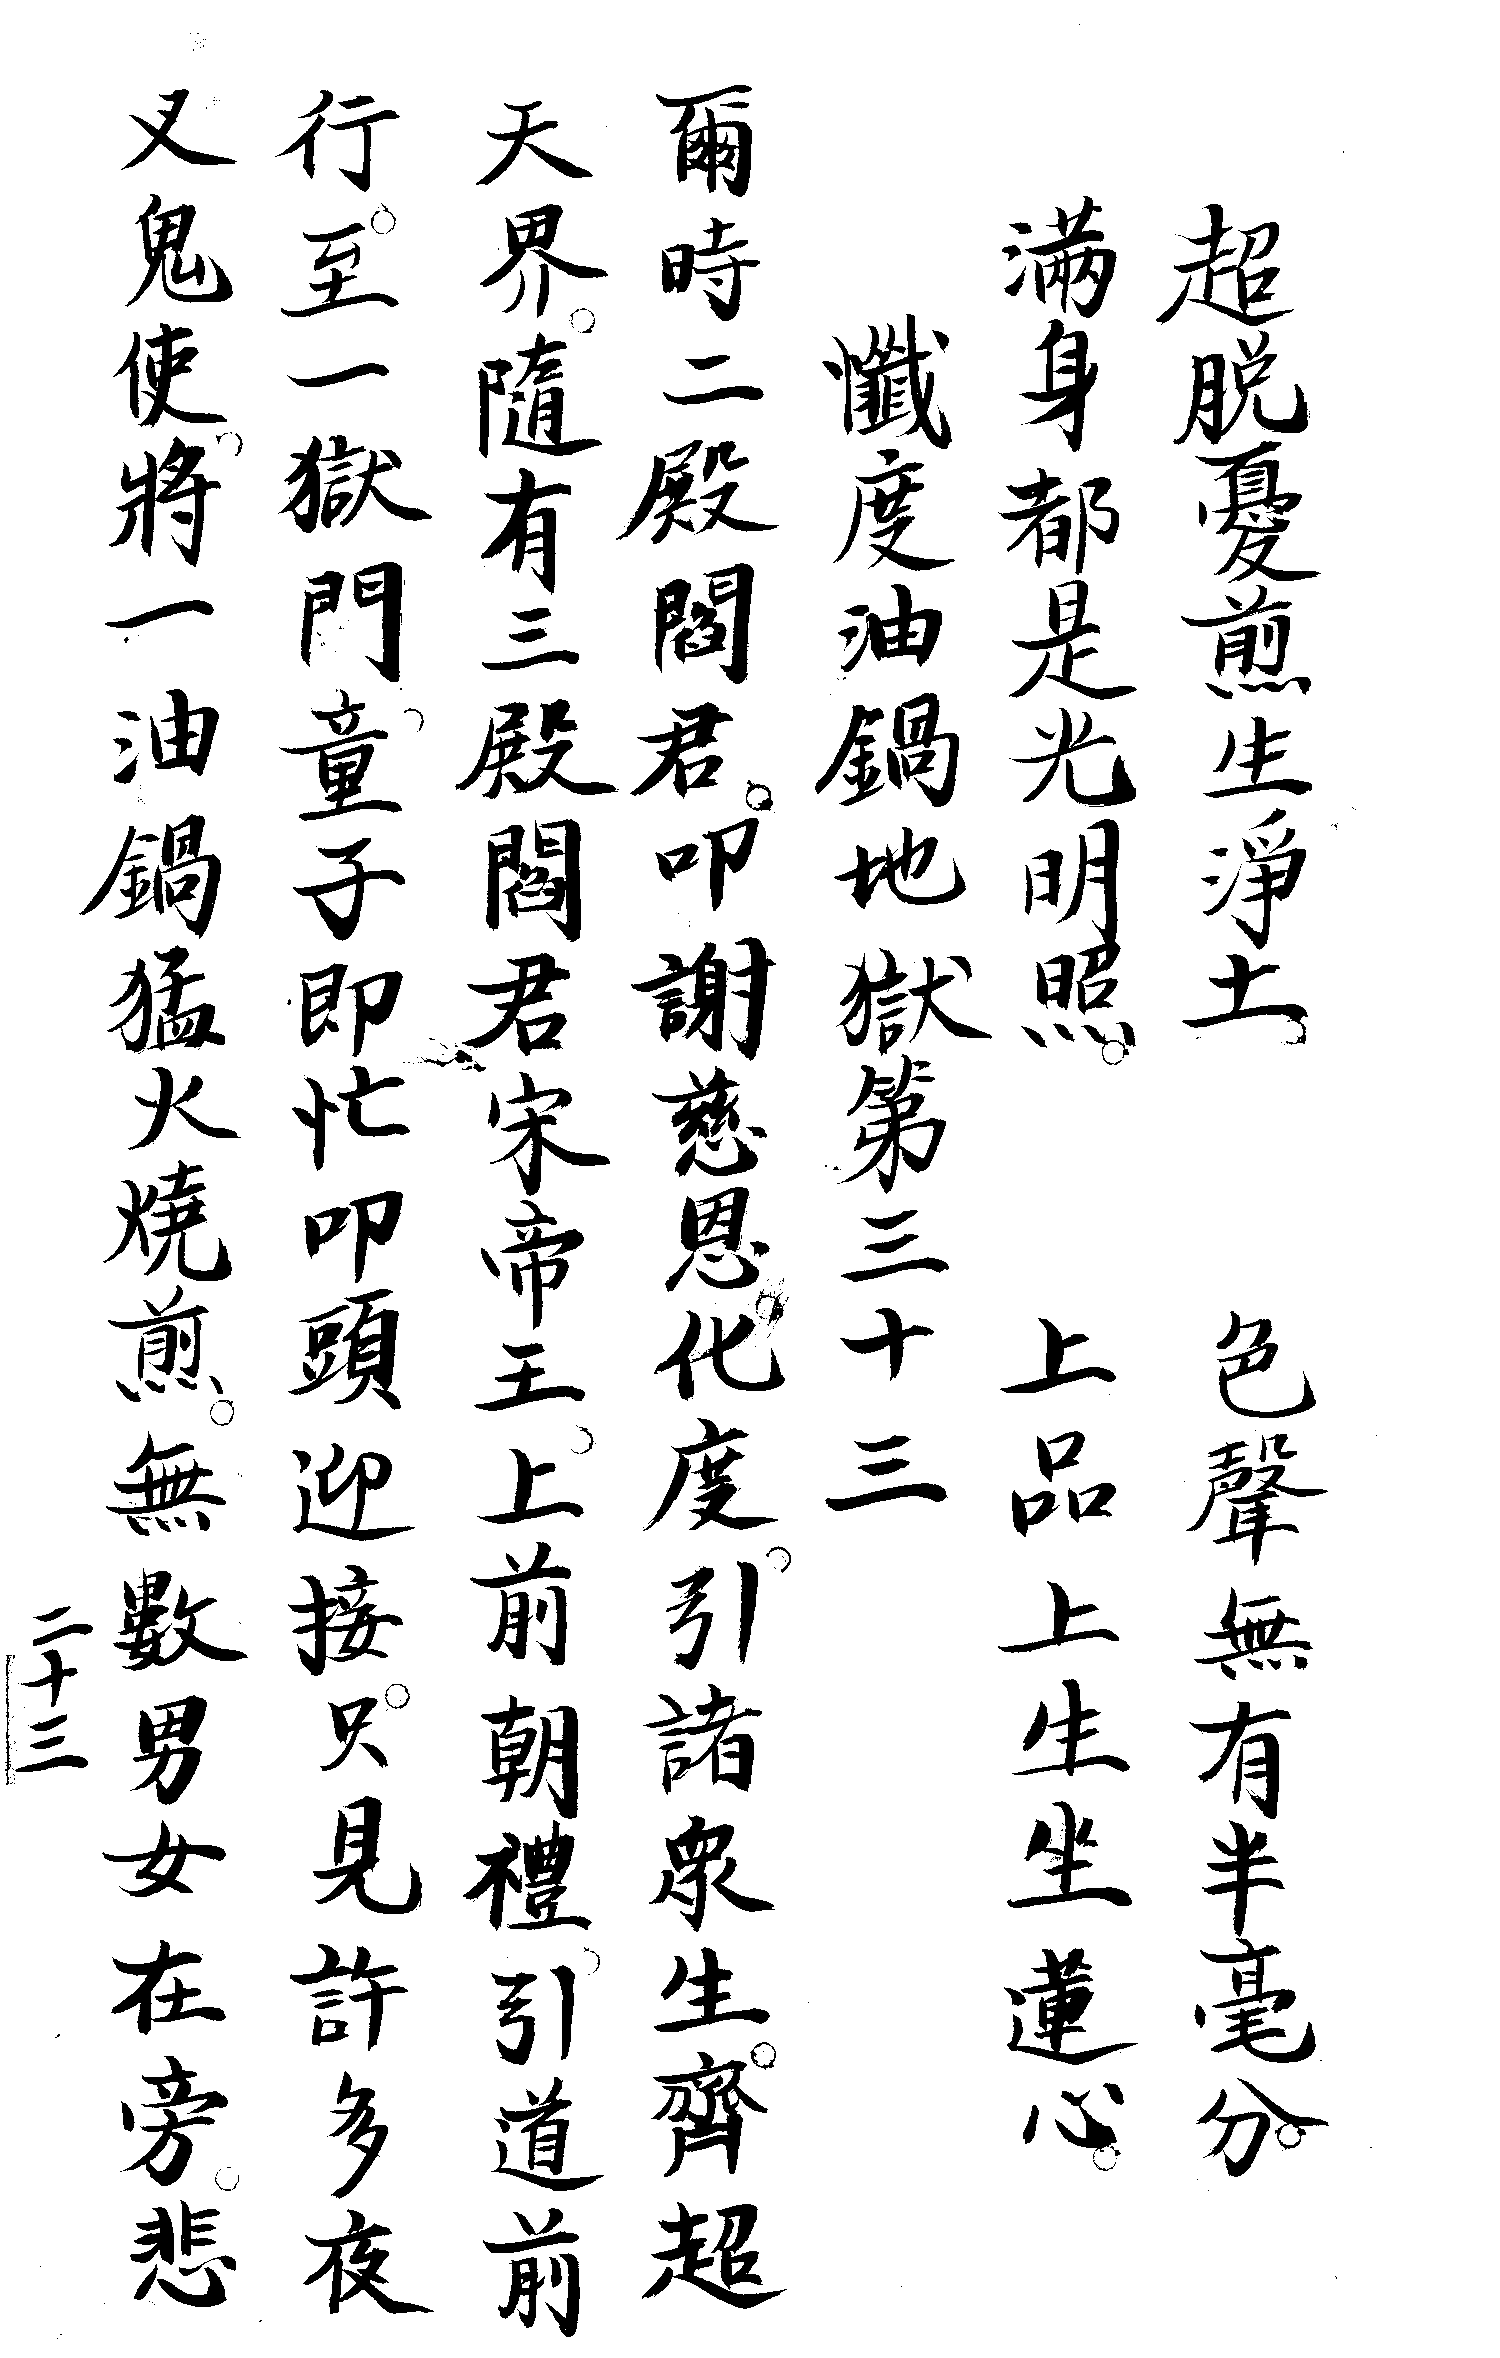 超脱憂煎生淨土。　色聲無有半毫分。
滿身都是光明照。　上品上生坐蓮心。
懺度油鍋地獄第三十三
爾時二殿閻君。叩謝慈恩。化度。引諸眾生。齊超
天界。隨有三殿閻君宋帝王。上前朝禮。引道前
行。至一獄門。童子即忙叩頭迎接。只見許多夜
叉鬼使。將一油鍋猛火燒煎。無數男女在旁。悲
二十三